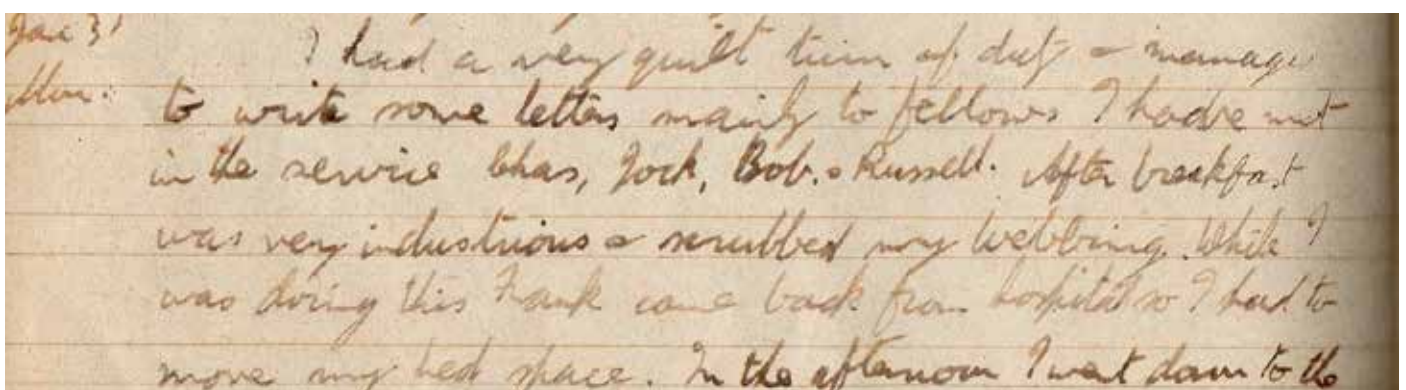 Jan 31 I had a very quilt turn of duty & manage
Mon. to write some letters mainly to fellows I hadve met
in the service Chas, Jock, Bob. & Russell. After breakfast
was very industrious & scrubbed my webbing. While I
was doing this Frank came back from hospital so I had to
move my bed space. In the afternoon I went down to the